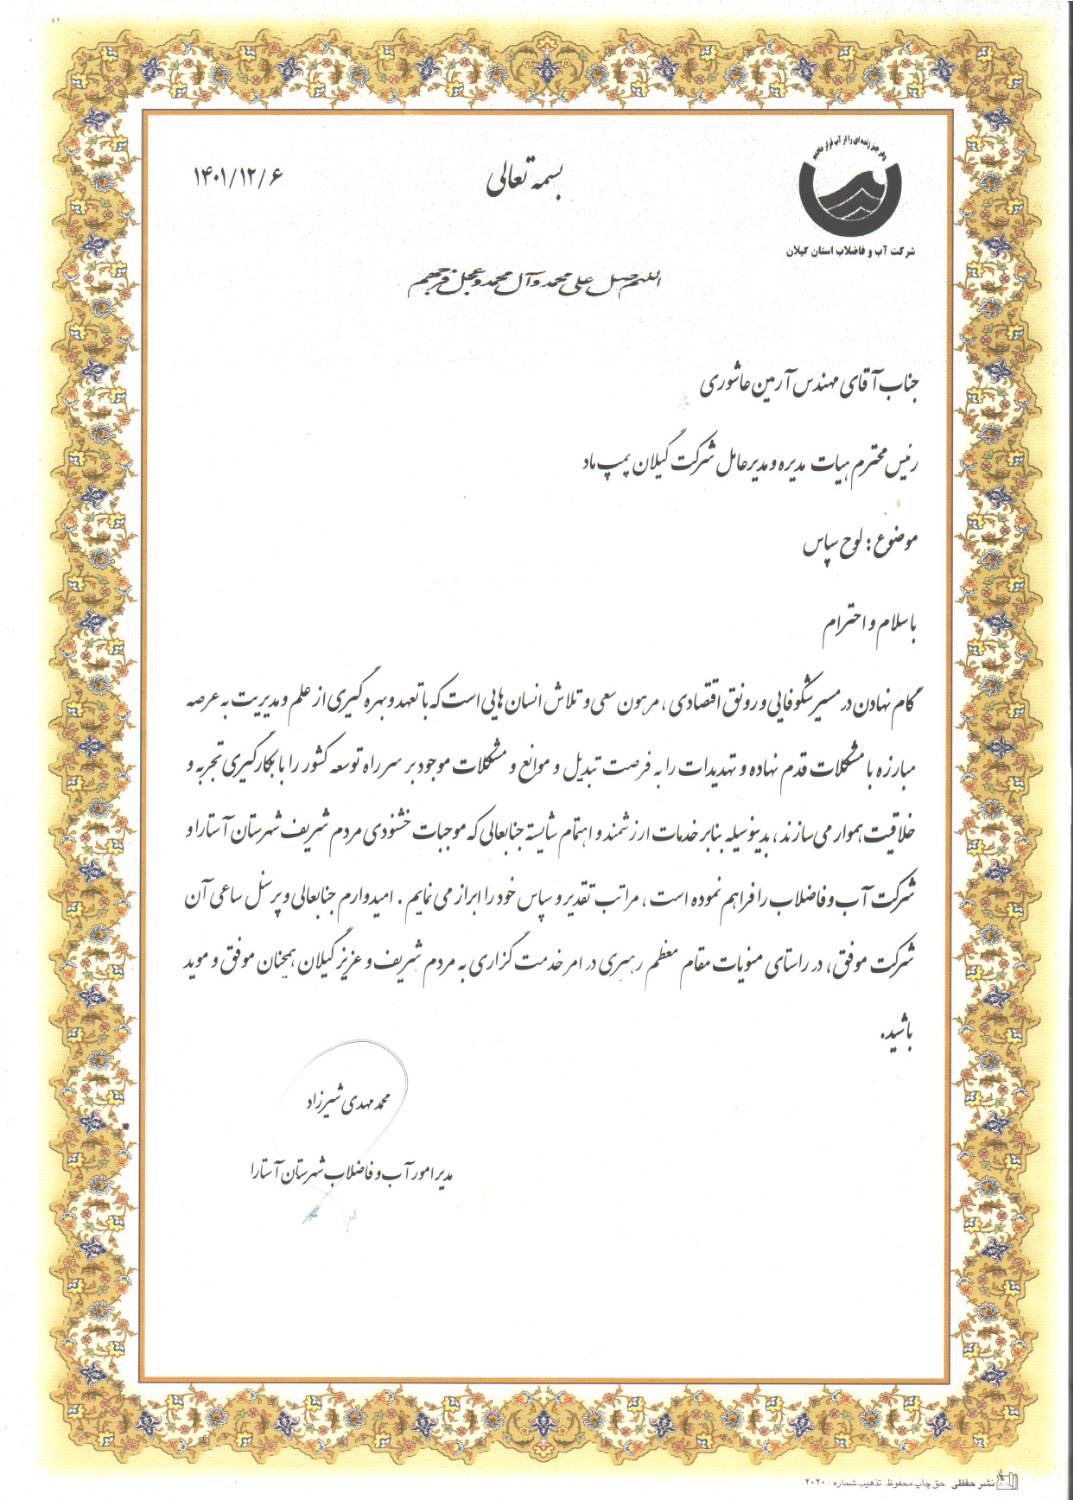 و هر چیز زنده‌ای را از آب قرار دادیم
شرکت آب و فاضلاب استان گیلان
بسمه تعالی
۱۴۰۱/۱۲/۶
اللهم صل علی محمد و آل محمد و عجل فرجهم
جناب آقای مهندس آرمین عاشوری
رئیس محترم هیات مدیره و مدیرعامل شرکت گیلان پمپ ماد
موضوع : لوح سپاس
باسلام و احترام
گام نهادن در مسیر شکوفایی و رونق اقتصادی ، مرهون سعی و تلاش انسان هایی است که با تعهد و بهره گیری از علم و مدیریت به عرصه
مبارزه با مشکلات قدم نهاده و تهدیدات را به فرصت تبدیل و موانع و مشکلات موجود بر سر راه توسعه کشور را با بکارگیری تجربه و
خلاقیت هموار می سازند ، بدینوسیله بنابر خدمات ارزشمند و اهتمام شایسته جنابعالی که موجبات خشنودی مردم شریف شهرستان آستارا و
شرکت آب و فاضلاب را فراهم نموده است ، مراتب تقدیر و سپاس خود را ابراز می نمایم . امیدوارم جنابعالی و پرسنل ساعی آن
شرکت موفق، در راستای منویات مقام معظم رهبری در امر خدمت گزاری به مردم شریف و عزیز گیلان همچنان موفق و موید
باشید.
محمد مهدی شیرزاد
مدیر امور آب و فاضلاب شهرستان آستارا
نشر حفظی حق چاپ محفوظ. تذهیب شماره : ۲۰۲۰